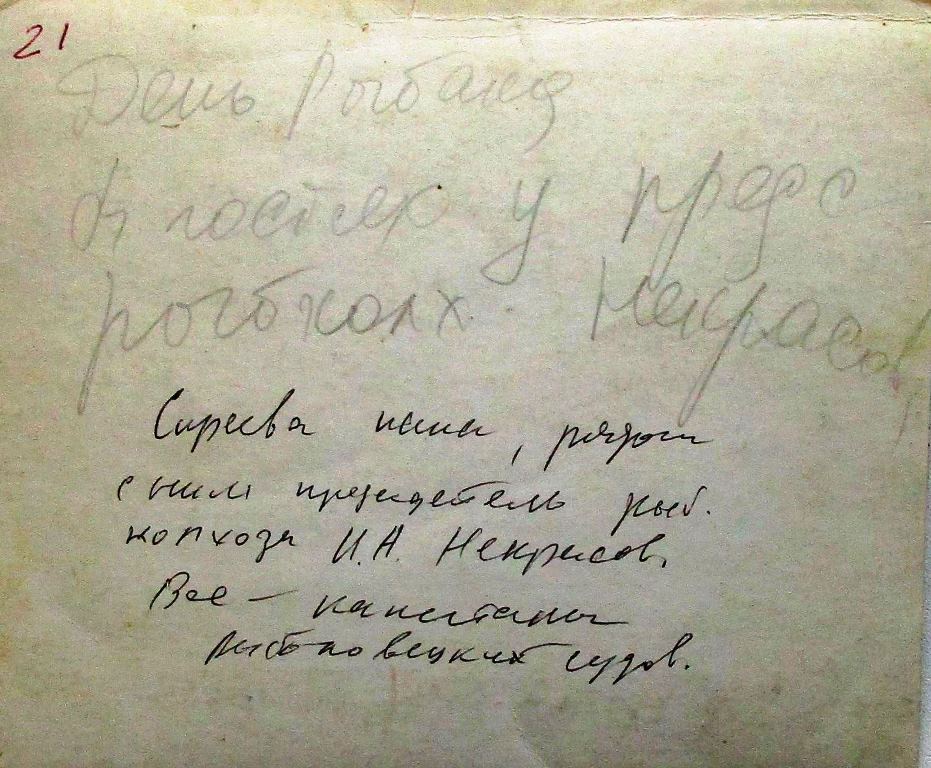 21
День Рыбака
В гостях у пред
рыбколх. Некрасов
Справа папа, рядом
с ним председатель рыб.
колхоза И.А. Некрасов.
Все – капитаны
рыбаковецких судов.